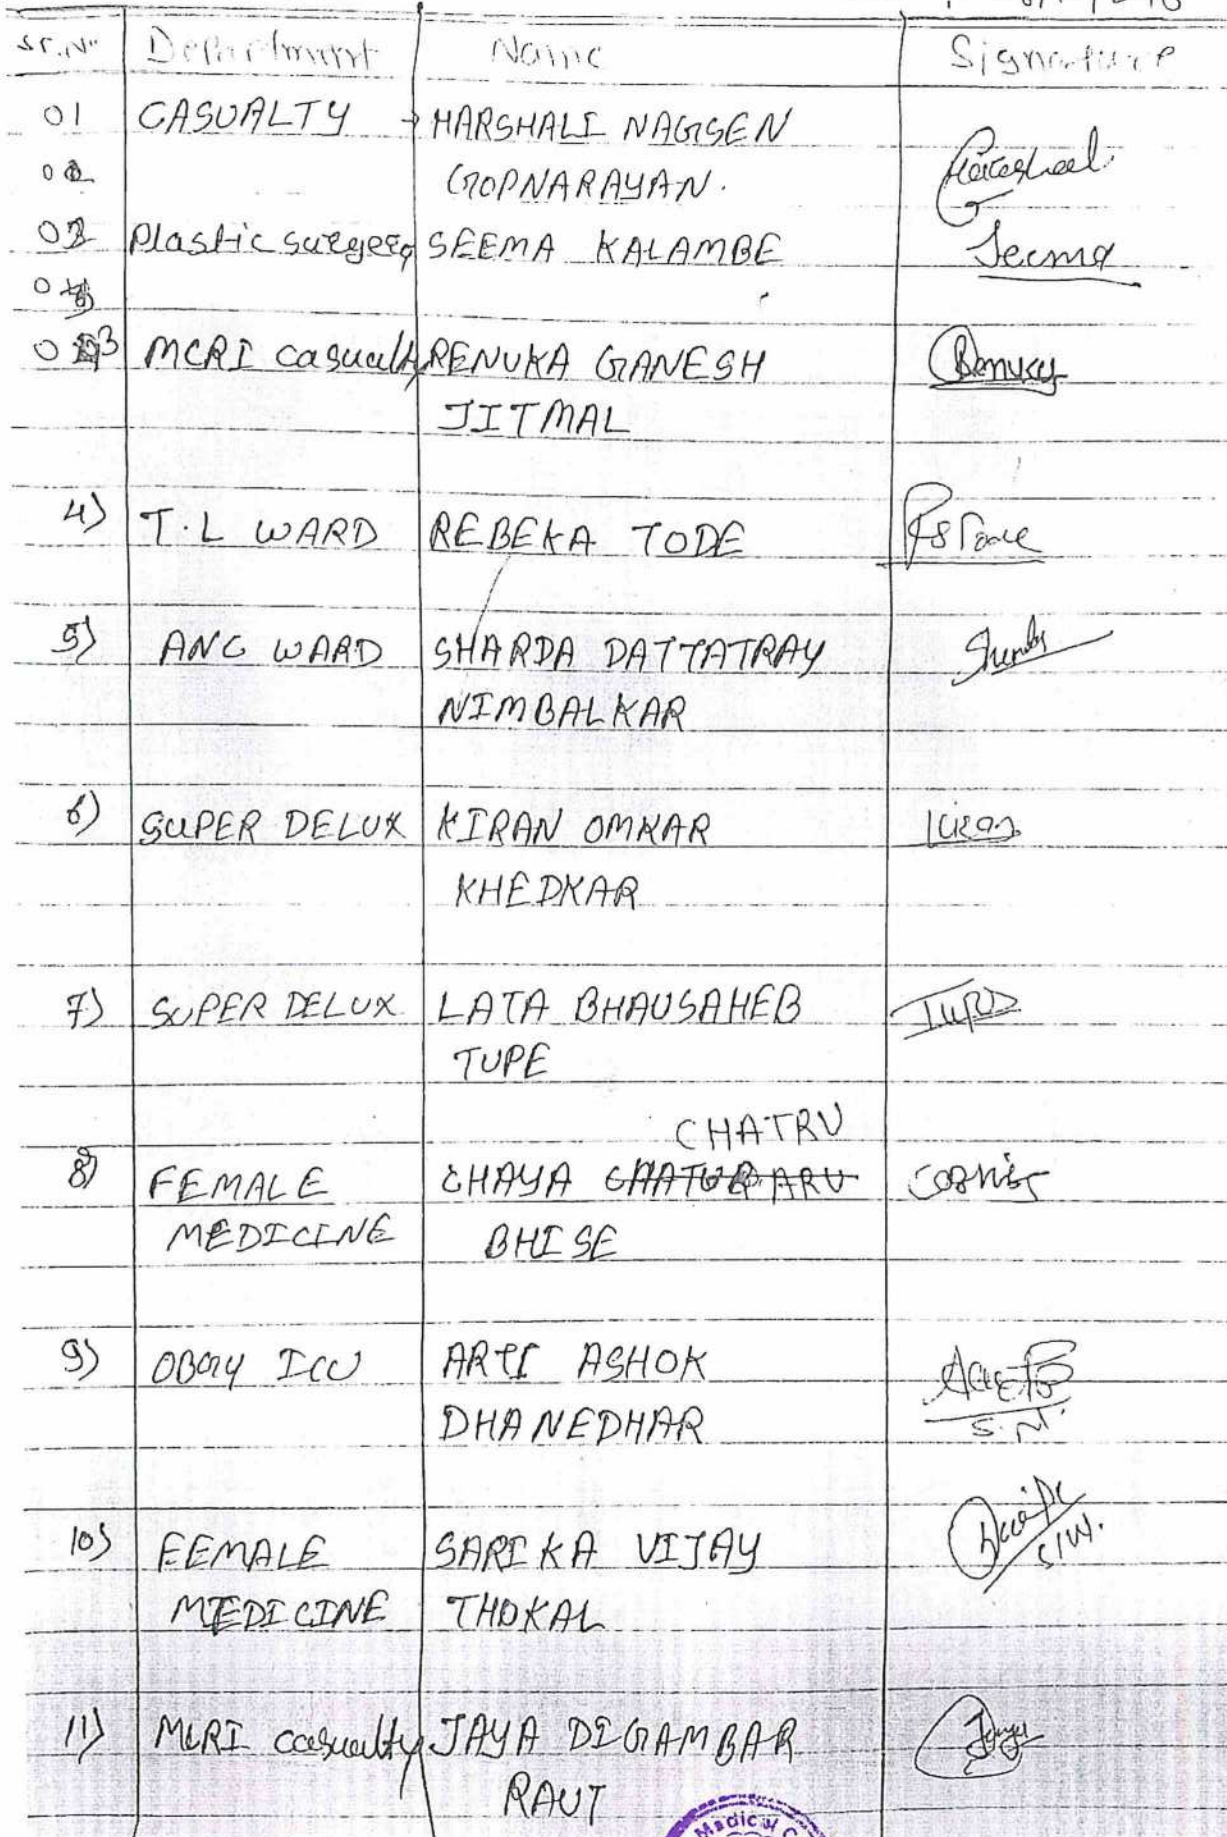 Sr.No Department Name Signature
01 CASUALTY HARSHALI NAGSEN
GOPNARAYAN.
02 Plastic surgery SEEMA KALAMBE Seema
03 MCRI casualty RENUKA GANESH Renuka
JITMAL
4) T.L WARD REBEKA TODE
5) ANC WARD SHARDA DATTATRAY
NIMBALKAR
6) SUPER DELUX KIRAN OMKAR Kiran
KHEDKAR
7) SUPER DELUX LATA BHAUSAHEB
TUPE
CHATRU
8) FEMALE CHAYA
MEDICINE BHISE
9) OBGY ICU ARTI ASHOK
DHANEDHAR S.N.
10) FEMALE SARIKA VIJAY
MEDICINE THOKAL
11) MCRI casualty JAYA DIGAMBAR Jaya
RAUT
Medical